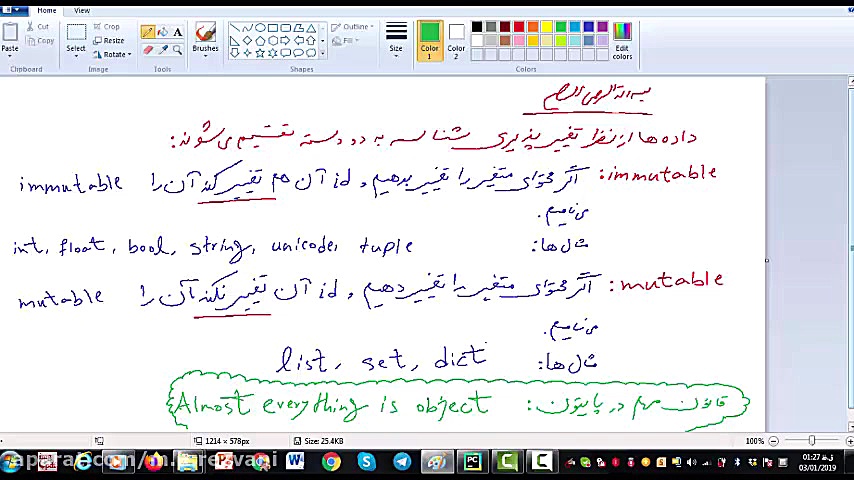 Home View
Cut
Copy
Paste
Clipboard
Crop
Resize
Rotate
Select
Image
Tools
Brushes
Shapes
Outline
Fill
Size
Color 1
Color 2
Edit colors
Colors
بسم الله الرحمن الرحیم
داده ها از نظر تغییر پذیری شناسه به دو دسته تقسیم می شوند:
immutable: اگر محتوای متغیر را تغییر بدهیم و id آن هم تغییر کند آن را immutable
می نامیم.
مثال ها: int, float, bool, string, unicode, tuple
mutable: اگر محتوای متغیر را تغییر دهیم و id آن تغییر نکند آن را mutable
می نامیم.
مثال ها: list, set, dict
قانون مهم در پایتون: Almost everything is object
1214 × 578px
Size: 25.4KB
100%
aparat.com/m.parezvani
01:27 ق.ظ
03/01/2019